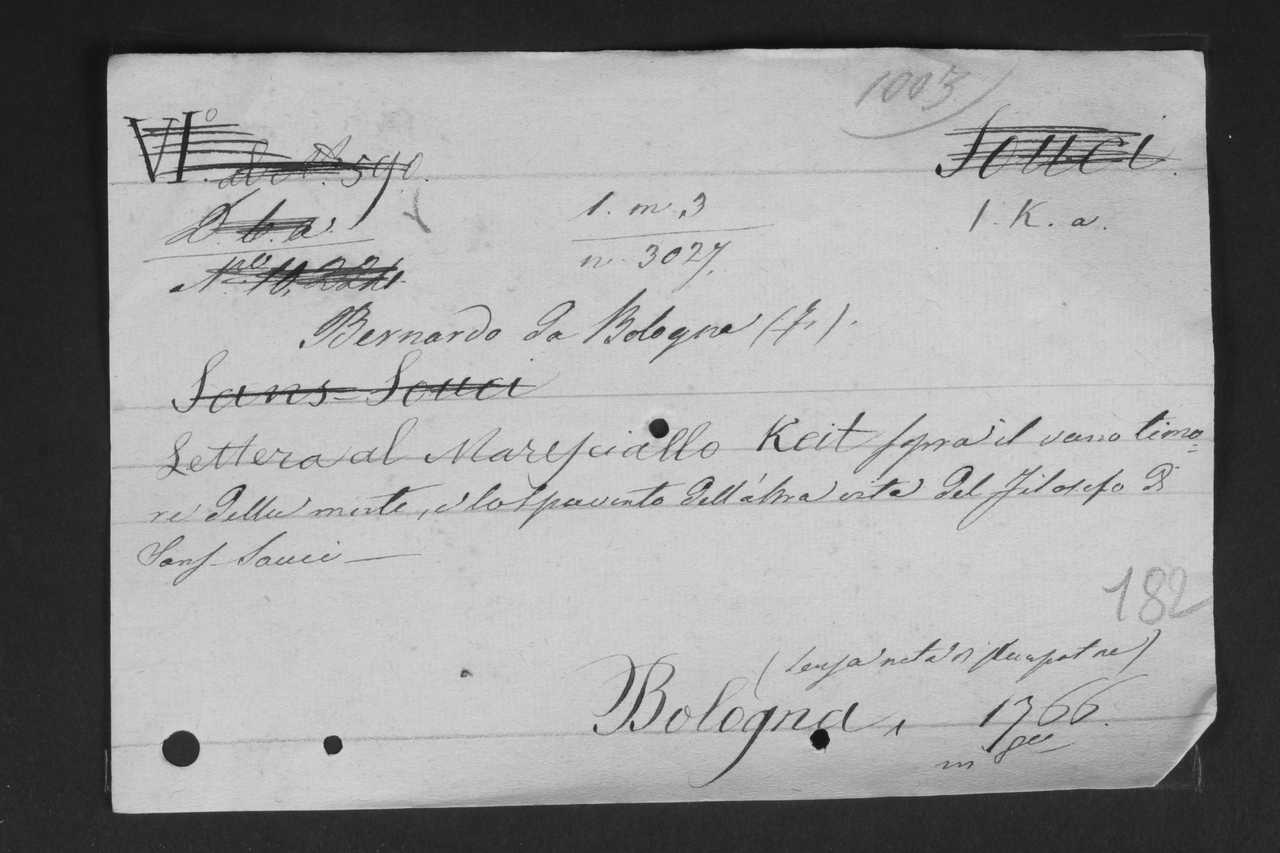 1003
VIº Souci.
590.
D. b. a.
1. m. 3
1. K. a.
n. 3027.
Nro 10,221
Bernardo da Bologna
Sans-Souci
Lettera al Maresciallo Keit sopra il vano timo=
re della morte, e lo spavento dell'altra vita del Filosofo di
Sans-Souci —
182
(senza nota di stampatore)
Bologna, 1766.
in